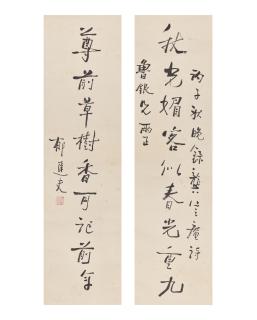 秋光媚客似春光重九
尊前草樹香可記前年
丙子秋晚錄龔定庵詩
魯銀兄兩正
郁達夫